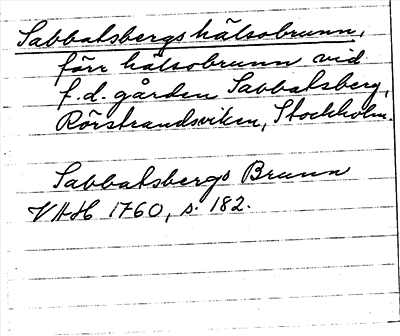 Sabbatsbergs hälsobrunn,
förr hälsobrunn vid
f.d. gården Sabbatsberg,
Rörstrandsviken, Stockholm.
Sabbatsbergs Brunn
VAH 1760, s. 182.